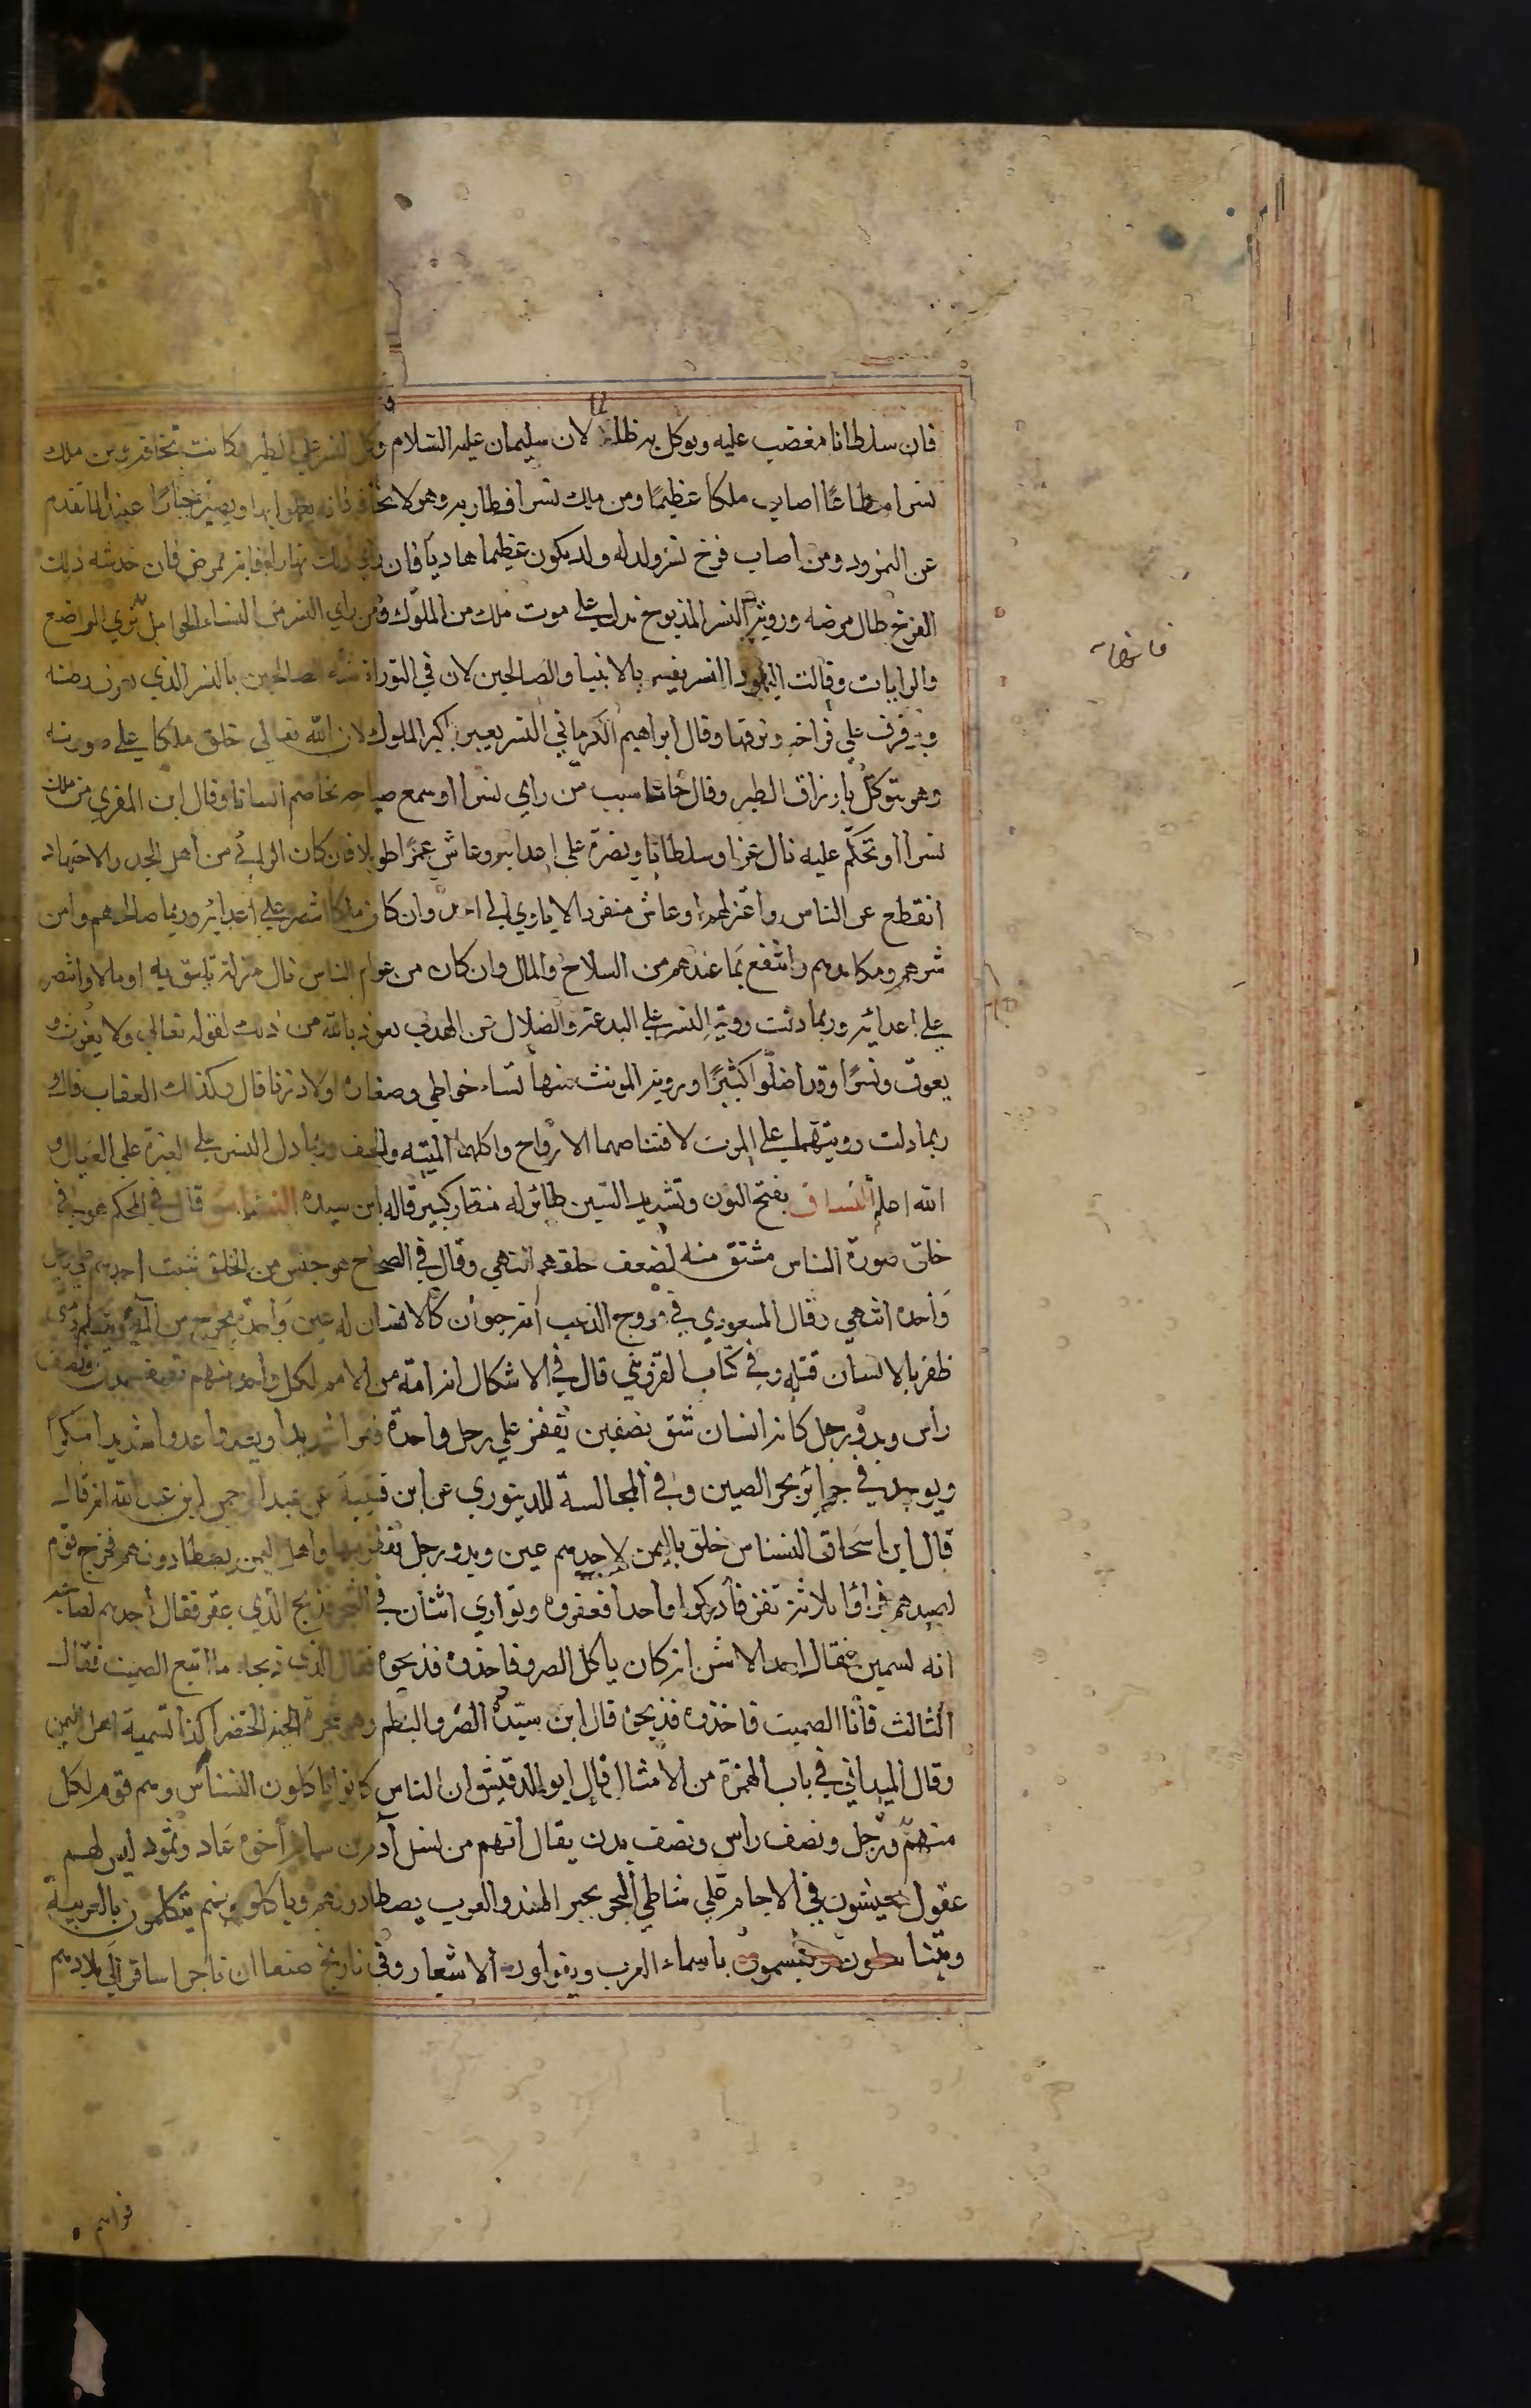 فان سلطانا مغضب عليه ويوكل به ظلما لان سليمان عليه السلام وكل النسر علي الطير وكانت تخافه ومن ملك
نسرا مطاعًا اصاب ملكا عظيمًا ومن ملك نسرا فطار به وهو لا يخاف فانه يعلوا امره ويصير جبارًا عنيدا لما تقدم
عن النمرود ومن اصاب فرخ نسر ولد له ولد يكون عظيما هاديا فان راي ذلك نهارا فانه يمرض فان خدشه ذلك
الفرخ طال مرضه وروية النسر المذبوخ يدل علي موت ملك من الملوك ومن راي النسر من النساء الحوامل تري المراضع
والدايات وقالت اليهود النسر يفسر بالانبيا والصالحين لان في التوراة شبه الصالحين بالنسر الذي يعرف وطنه
ويرفرف علي فراخه ويزقها وقال ابراهيم الكرماني النسر يعبر باكبر الملوك لان الله تعالي خلق ملكا علي صورته
وهو يتوكل بارزاق الطير وقال جاماسب من راي نسرا او سمع صياحه يخاصم انسانا وقال ابن المقري من ملك
نسرا او تحكم عليه نال عزا وسلطانا ونصرة علي اعدائه وعاش عمرًا طويلا فان كان الرائي من اهل الجد والاجتهاد
انقطع عن الناس واعتزلهم وعاش منفردا لا ياوي الي احد وان كان ملكا انتصر علي اعدائه وربما صالحهم وامن
شرهم ومكايدهم وانتفع بما عندهم من السلاح والمال وان كان من عوام الناس نال منزلة تليق به او مالا وانتصر
علي اعدائه وربما دلت روية النسر علي البدعة والضلال عن الهدي نعوذ بالله من ذلك لقوله تعالي ولا يغوث و
يعوق ونسرًا وقد اضلوا كثيرًا وروية المونث منها نساء خواطي وصغاره اولاد زنا قال وكذلك العقاب قال و
ربما دلت رويتهما علي الموت لاقتناصهما الارواح واكلهما الميتة والجيف وربما دل النسر علي الغيرة علي العيال و
الله اعلم النساف بفتح النون وتشديد السين طائر له منقار كبير قاله ابن سيده النسناس قال في المحكم هو في
خلق صورة الناس مشتق منه لضعف خلقهم انتهي وقال في الصحاح هو جنس من الخلق يثب احدهم علي رجل
واحدة انتهي وقال المسعودي في مروج الذهب انه حيوان كالانسان له عين واحدة يخرج من الماء ويتكلم ومتي
ظفر بالانسان قتله وفي كتاب القزويني قال في الاشكال انه امة من الامم لكل واحد منهم نصف بدن ونصف
راس ويد ورجل كانه انسان شق نصفين يقفز علي رجل واحدة قفزا شديدا ويعدوا عدوا شديدا منكرا
ويوجد في جزائر بحر الصين وفي المجالسة للدينوري عن ابن قتيبة عن عبد الرحمن ابن عبد الله انه قال
قال ابن اسحاق النسناس خلق باليمن لاحدهم عين ويد ورجل يقفز بها واهل اليمن يصطادونهم فخرج قوم
لصيدهم فراوا ثلاثة نفر فادركوا واحدا فعقروه وتواري اثنان في الشجر فذبح الذي عقر فقال احدهم لصاحبه
انه لسمين فقال احد الاثنين انه كان ياكل الضرو فاخذوه فذبحوه فقال الذي ذبحه ما انفع الصميت فقال
الثالث فانا الصميت فاخذوه فذبحوه قال ابن سيده الضرو البطم وهي شجرة الحبة الخضرا كذا تسمية اهل اليمن
وقال الميداني في باب الهمزة من الامثال قال ابو الدقيش ان الناس كانوا ياكلون النسناس وهم قوم لكل
منهم ورجل ونصف راس ونصف بدن يقال انهم من نسل آدم بن سام اخوة عاد وثمود ليس لهم
عقول يعيشون في الاجام علي شاطي البحر بحر الهند والعرب يصطادونهم وياكلونهم وهم يتكلمون بالعربية
ويتناسلون ويتسمون باسماء العرب ويقولون الاشعار وفي تاريخ صنعا ان تاجرا سافر الي بلادهم
فراهم